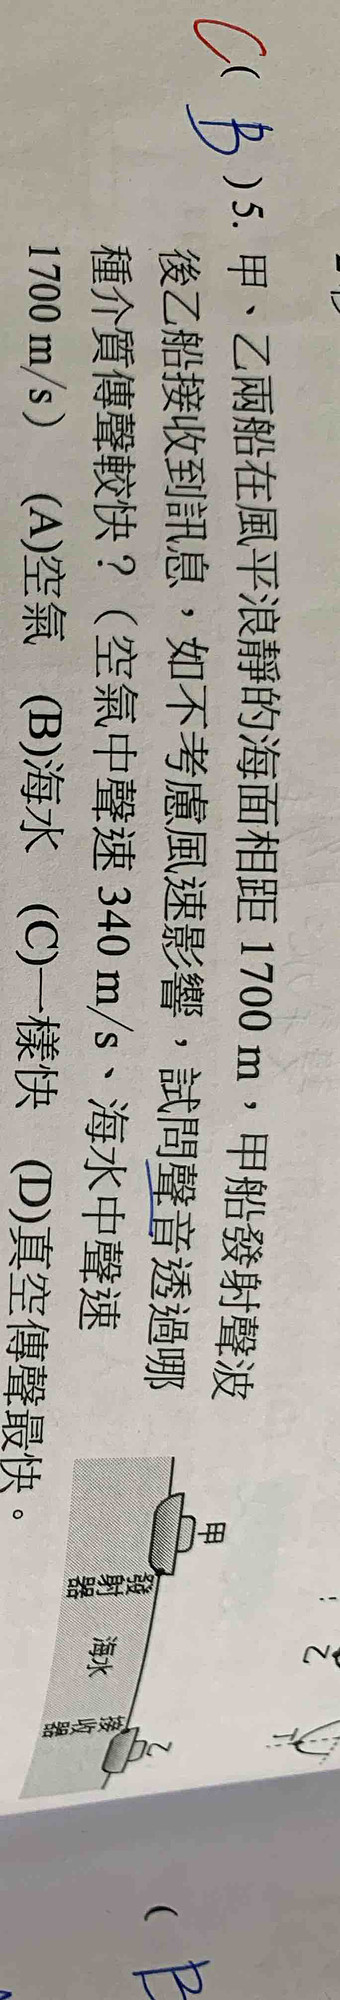 C ( B ) 5. 甲、乙兩船在風平浪靜的海面相距 1700 m，甲船發射聲波
後乙船接收到訊息，如不考慮風速影響，試問聲音透過哪
種介質傳聲較快？（空氣中聲速 340 m/s、海水中聲速
1700 m/s） (A)空氣 (B)海水 (C)一樣快 (D)真空傳聲最快。
甲
發射器
海水
接收器
乙
( B